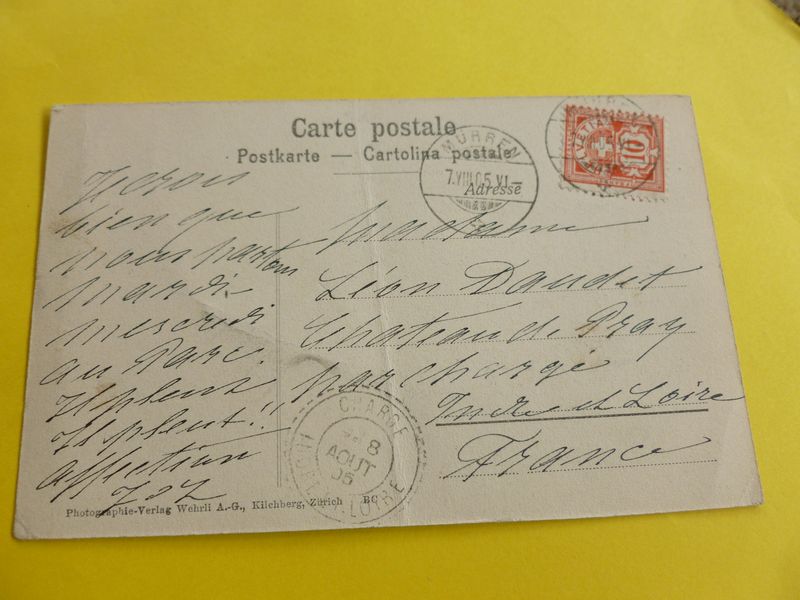 Carte postale
Postkarte — Cartolina postale
MÜRREN
7.VIII.05.VI–
Adresse
10
Je crois
bien que
nous partons
mardi
mercredi
au Parc.
Il pleut
Il pleut!!
affection
Madame
Léon Daudet
Chateau de Pray
par Chargé
Indre et Loire
France
CHARGÉ
8
AOUT
05
INDRE-ET-LOIRE
Photographie-Verlag Wehrli A.-G., Kilchberg, Zürich BC